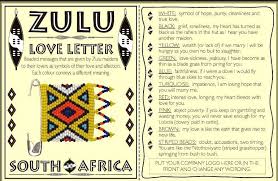 ZULU
LOVE LETTER
Beaded messages that are given by Zulu maidens
to their lovers as symbols of their love and affection.
Each colour conveys a different meaning.
SOUTH AFRICA
WHITE: symbol of hope, purity, cleanliness and
true love.
BLACK: grief, loneliness, my heart has turned as
black as the rafters in the hut as I hear you have
another maiden.
YELLOW: wealth (or lack of) if we marry I will be
hungry as you own no bull to slaughter.
GREEN: love-sickness, jealousy, I have become as
thin as a blade grass from pining for you.
BLUE: faithfulness, if I were a dove I would fly
endless skies to reach you.
TURQUOISE: I am losing patience with you, I
think you may be
RED: intense love, longing, my heart bleeds with
love for you.
PINK: poverty, if you keep on gambling and
wasting money, you will never have enough to
lobola for me.
BROWN: my love is like the earth that gives rise to
new life.
STRIPED BEADS: doubt, accusations, two timing.
You are like the intothoviyane (striped grasshopper)
springing from bush to bush.
PUT YOUR COMPANY LOGO HERE OR IN THE
FRONT OR CHANGE IF NECESSARY. SAY